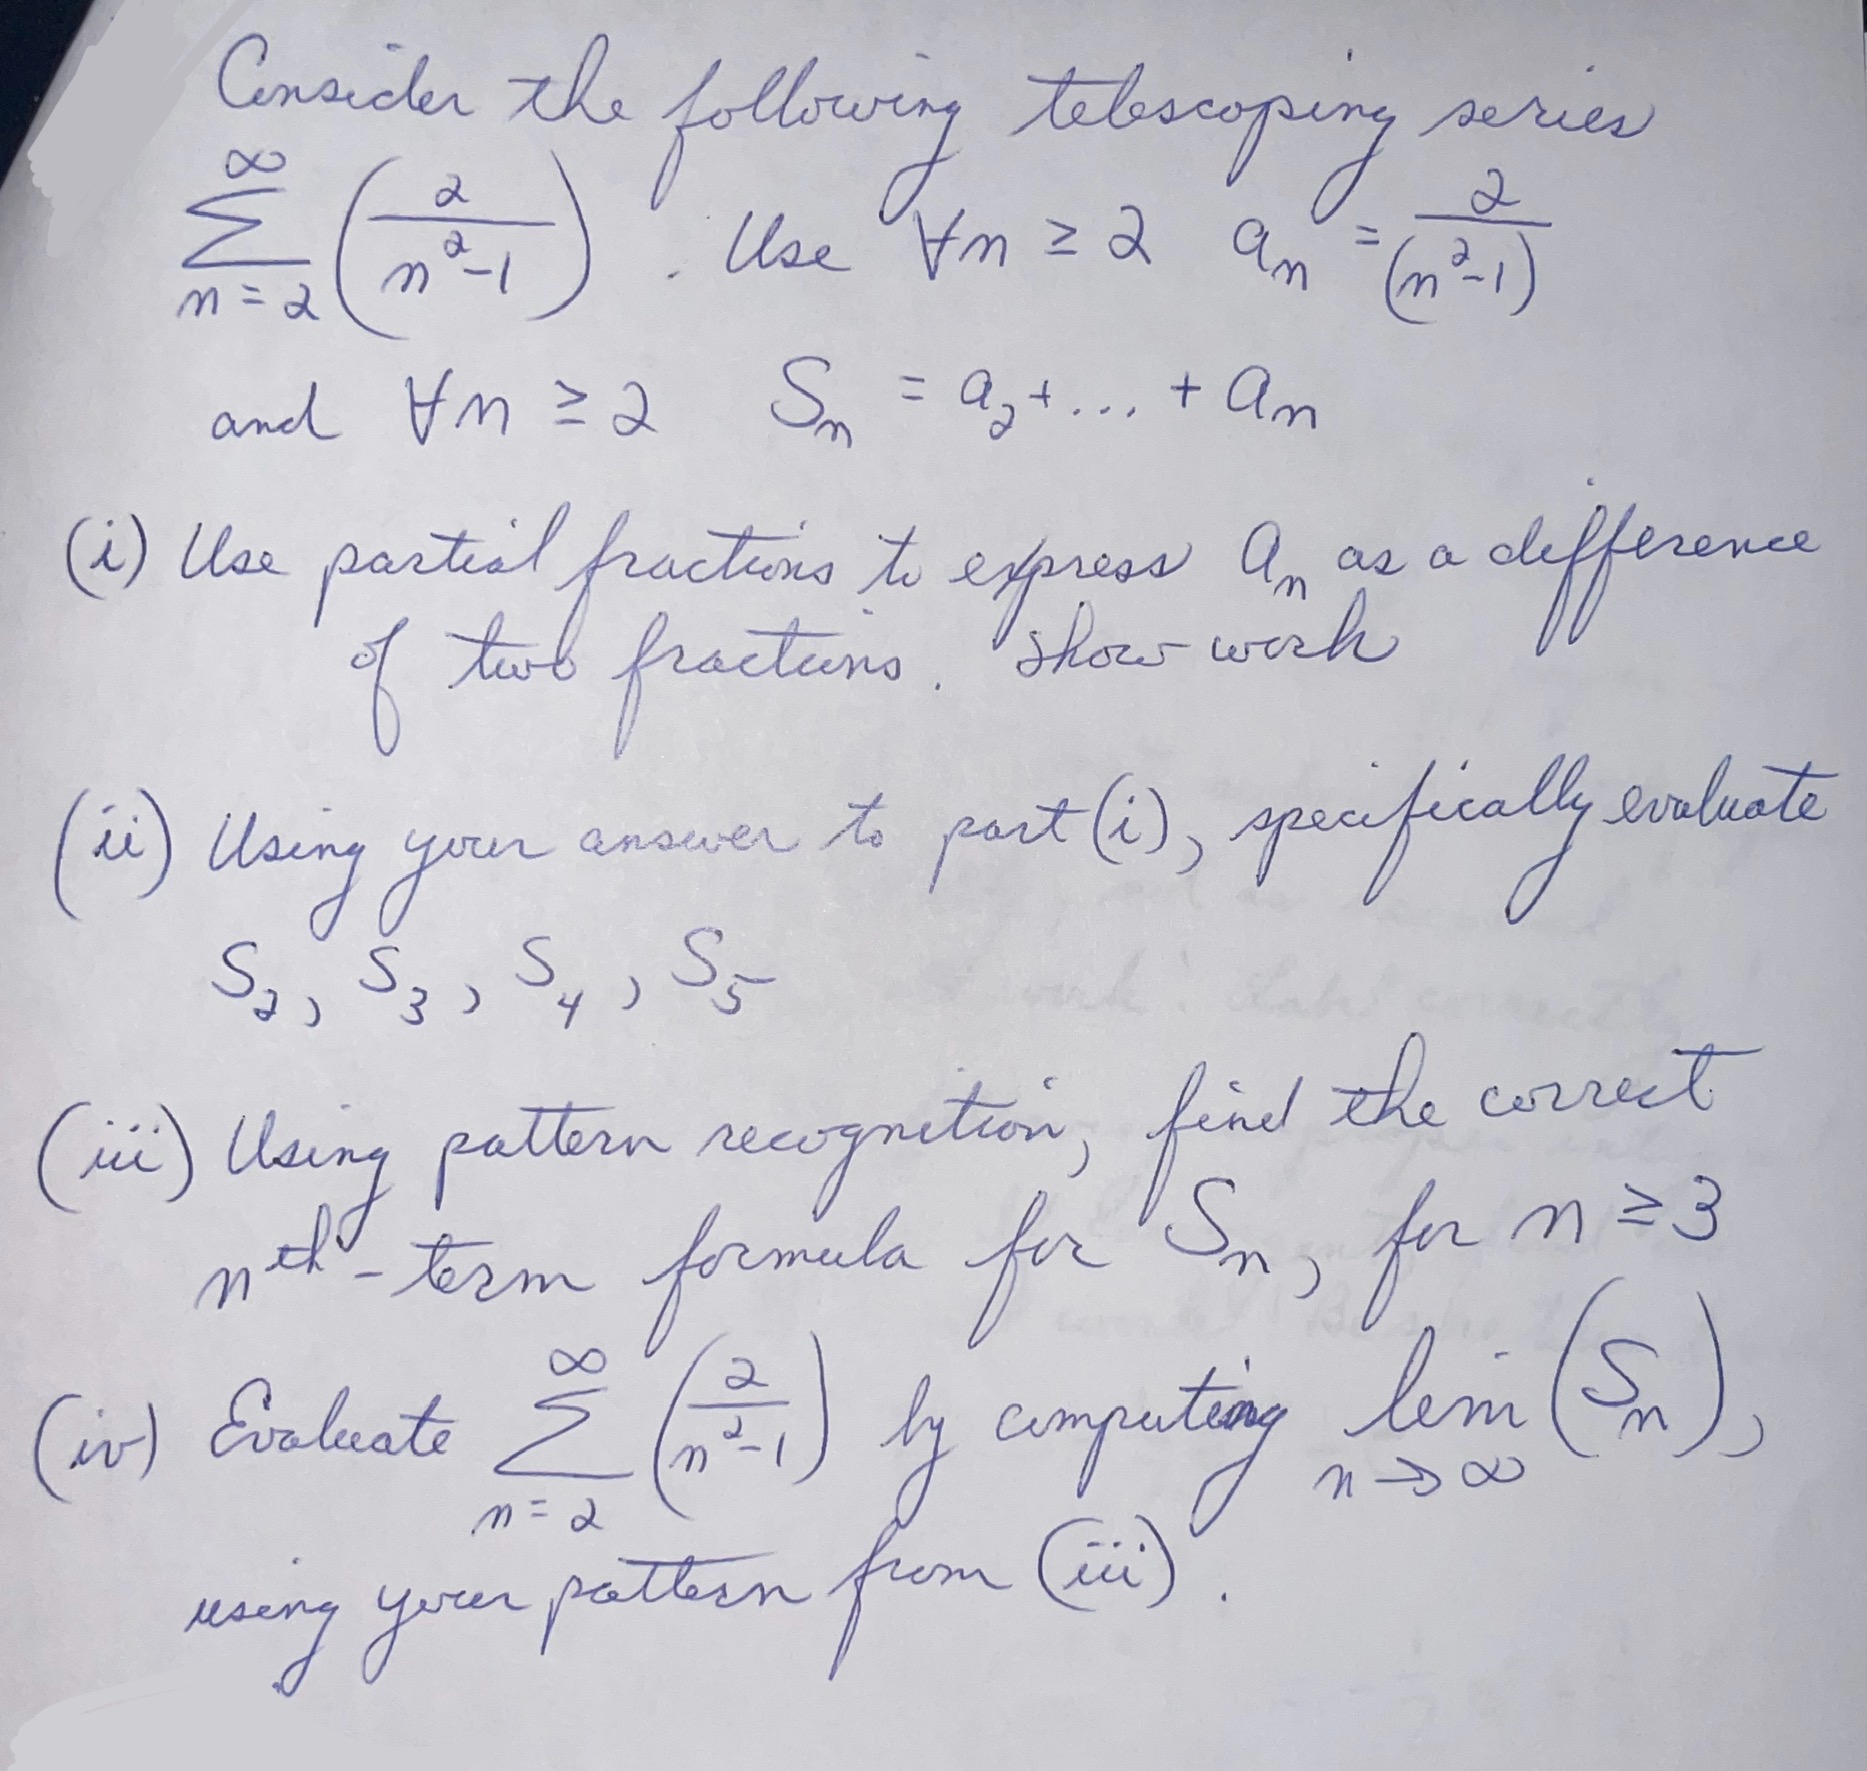 Consider the following telescoping series
∑_{n=2}^{∞} (2/(n²-1)). Use ∀n ≥ 2 aₙ = 2/(n²-1)
and ∀n ≥ 2 Sₙ = a₂+...+aₙ
(i) Use partial fractions to express aₙ as a difference
of two fractions. Show work
(ii) Using your answer to part (i), specifically evaluate
S₂, S₃, S₄, S₅
(iii) Using pattern recognition, find the correct
nᵗʰ-term formula for Sₙ, for n ≥ 3
(iv) Evaluate ∑_{n=2}^{∞} (2/(n²-1)) by computing lim_{n→∞} (Sₙ),
using your pattern from (iii).